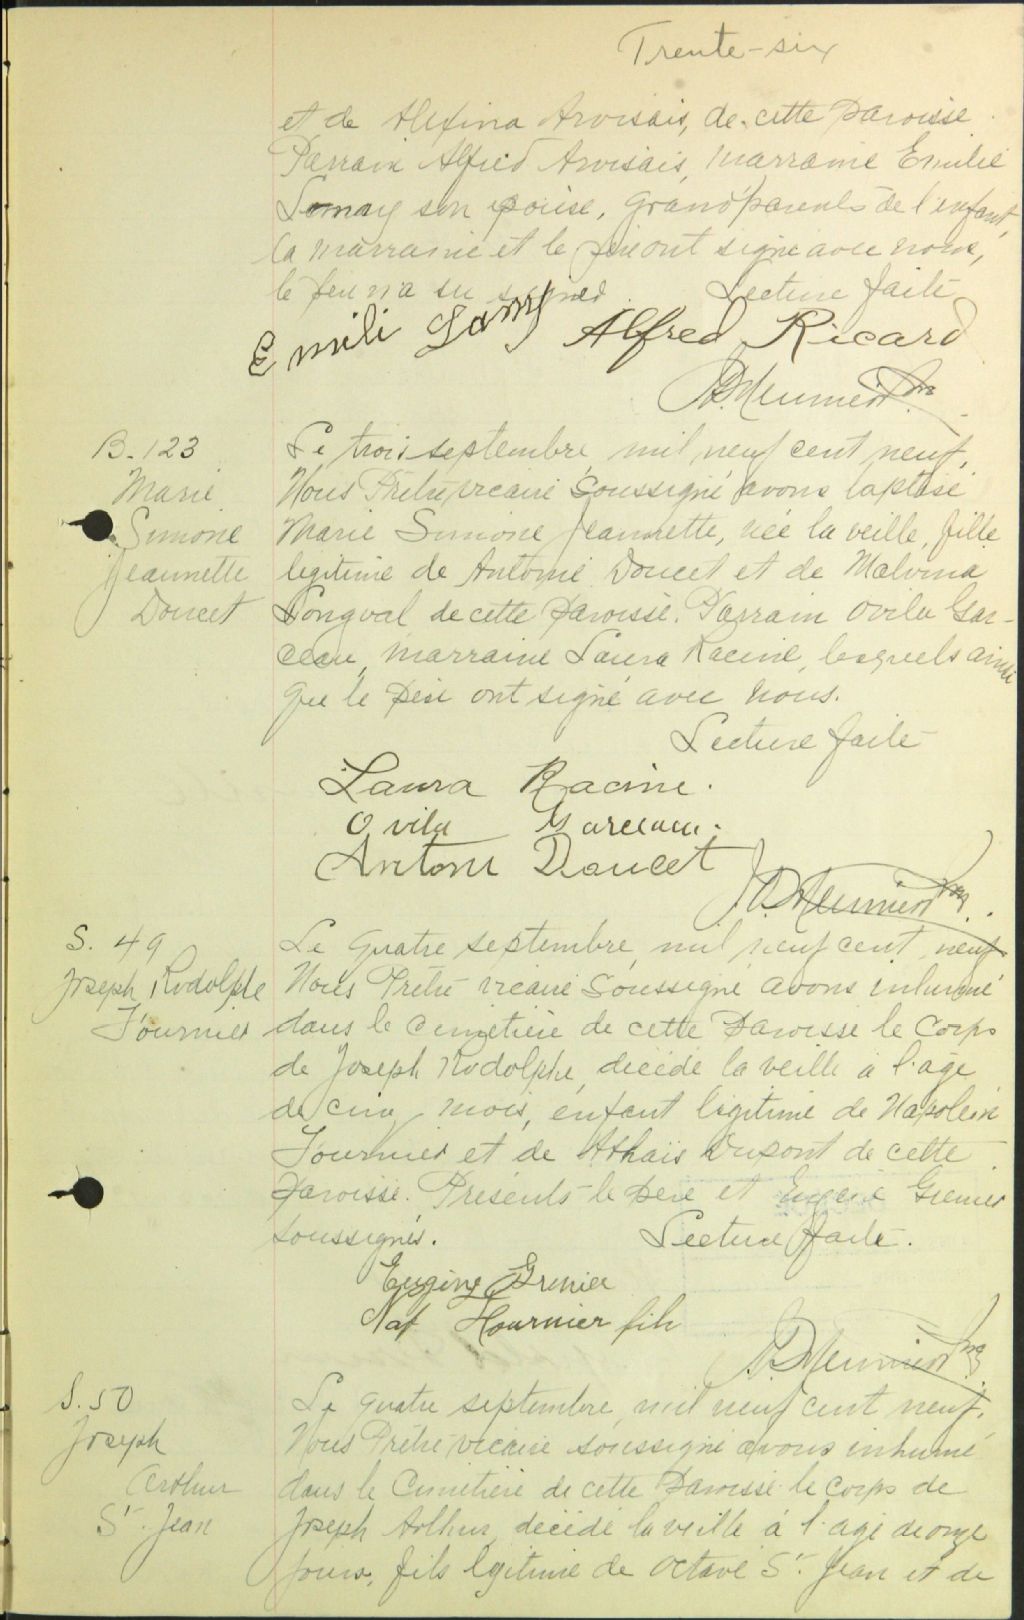 Trente-six
et de Alexina Arvisais, de cette Paroisse.
Parrain Alfred Arvisais, marraine Emilie
Lamy son épouse, grand'parents de l'enfant,
la marraine et le père ont signé avec nous,
le n'a su signer. Lecture faite
Emili Lamy Alfred Ricard
Meunier Ptre
B. 123
Marie
Simone
Jeannette
Doucet
Le trois septembre mil neuf cent neuf,
Nous Prêtre vicaire soussigné avons baptisé
Marie Simone Jeannette, née la veille, fille
légitime de Antoine Doucet et de Malvina
Longval de cette Paroisse. Parrain Ovila Gar-
ceau, marraine Laura Racine, lesquels ainsi
que le père ont signé avec nous.
Lecture faite
Laura Racine.
Ovila Garceau.
Antoni Doucet
Meunier Ptre.
S. 49
Joseph Rodolphe
Fournier
Le quatre septembre, mil neuf cent neuf
Nous Prêtre vicaire soussigné avons inhumé
dans le cimetière de cette Paroisse le corps
de Joseph Rodolphe, décédé la veille à l'âge
de cinq mois, enfant légitime de Napoléon
Fournier et de Athaïs Dupont de cette
Paroisse. Présents le père et Eugène Grenier
soussignés. Lecture faite.
Eugène Grenier
Nap Fournier fils
Meunier Ptre
S. 50
Joseph
Arthur
St. Jean
Le quatre septembre, mil neuf cent neuf.
Nous Prêtre vicaire soussigné avons inhumé
dans le Cimetière de cette Paroisse le corps de
Joseph Arthur, décédé la veille à l'âge de onze
jours, fils légitime de Octave St. Jean et de